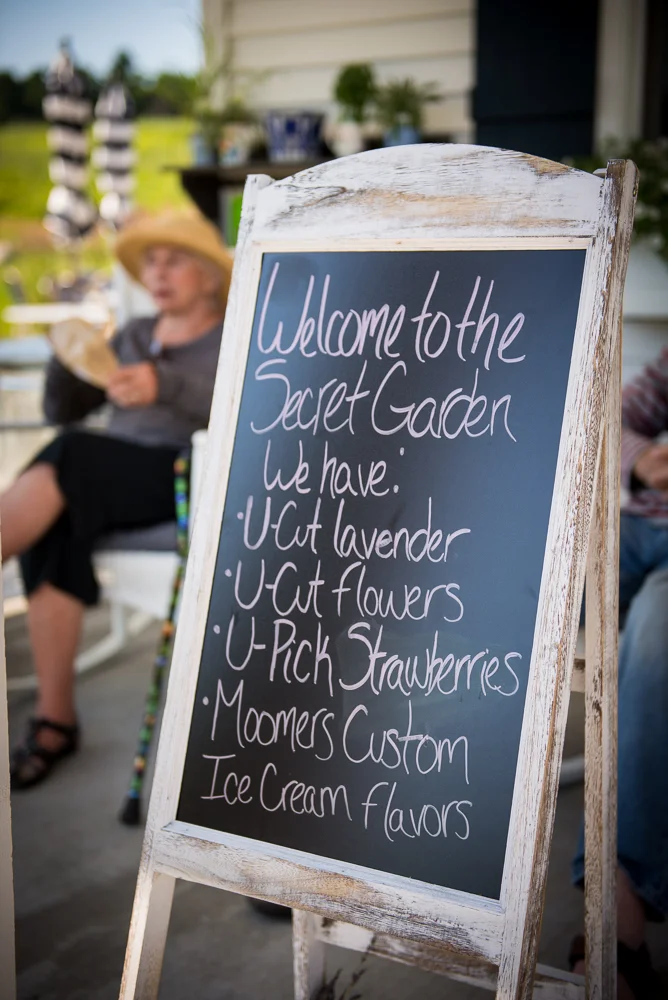 Welcome to the
Secret Garden
We have:
· U-Cut lavender
· U-Cut flowers
· U-Pick Strawberries
· Moomers Custom
Ice Cream flavors